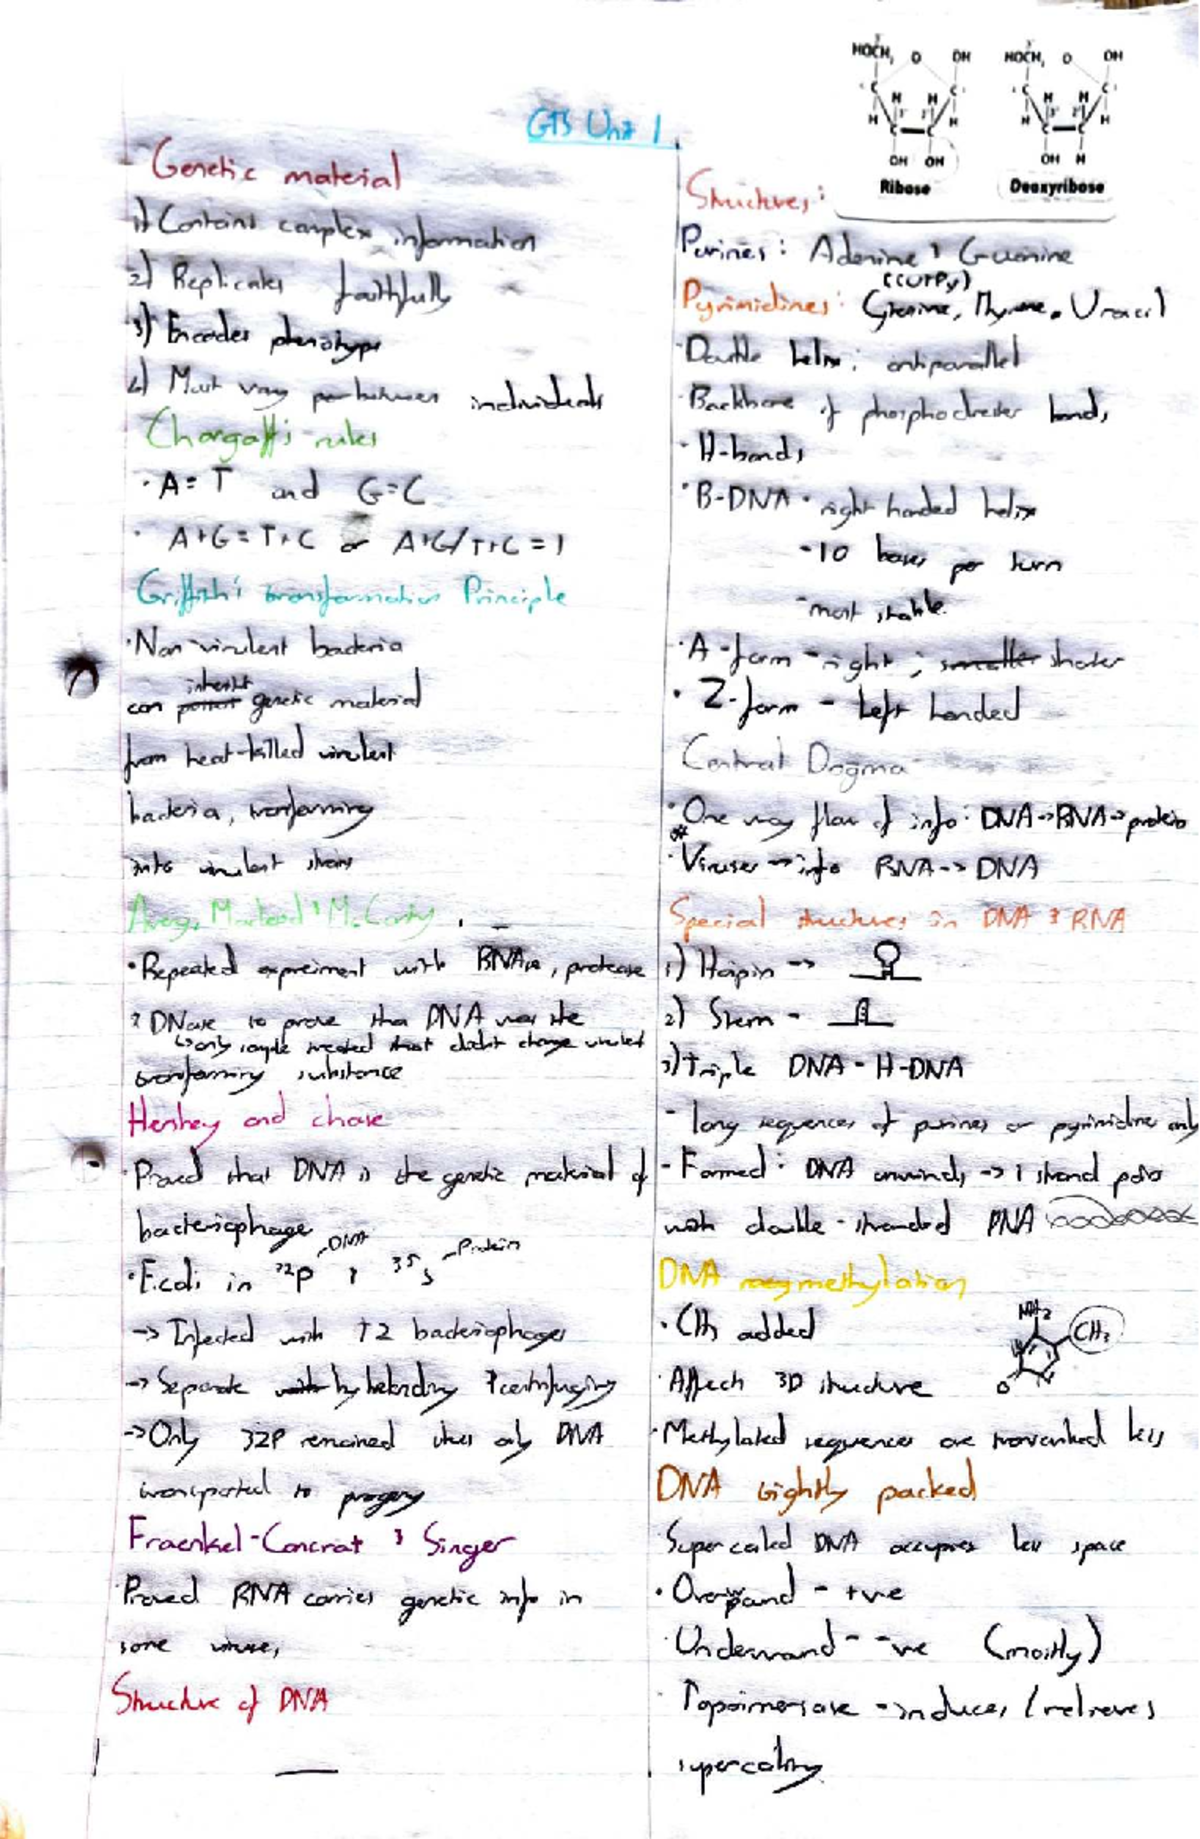 GTS Unit 1
Genetic material
1) Contains complex information
2) Replicates faithfully
3) Encodes phenotype
4) Must vary between individuals
Chargaff's rules
· A=T and G=C
· A+G=T+C or A+G/T+C=1
Griffith's transformation Principle
· Non-virulent bacteria
can inherit genetic material
from heat-killed virulent
bacteria, transforming
into virulent strain
Avery, Macleod & McCarty
· Repeated expreiment with RNAse, protease
& DNase to prove that DNA was the
↳ only sample treated that didn't change virulent
transforming substance
Hershey and chase
· Proved that DNA is the genetic material of
bacteriophage
-DNA -Protein
· E.coli in 32P & 35S
→ Infected with T2 bacteriophages
→ Separate by blending & centrifuging
→ Only 32P remained only DNA
transported to progeny
Fraenkel-Conrat & Singer
Proved RNA carries genetic info in
some viruses
Structure of DNA
HOCH2 O OH
C H H C
H C C H
OH OH
Ribose
HOCH2 O OH
C H H C
H C C H
OH H
Deoxyribose
Structures:
Purines: Adenine & Guanine
(CUTPy)
Pyrimidines: Cytosine, Thymine, Uracil
· Double helix: antiparallel
· Backbone of phosphodiester bonds
· H-bonds
· B-DNA - right handed helix
-10 bases per turn
-most stable
· A-form - right; smaller shorter
· Z-form - Left handed
Central Dogma
· One way flow of info: DNA→RNA→protein
* · Viruses → info RNA → DNA
Special structures in DNA & RNA
1) Haipin →
2) Stem -
3) Triple DNA - H-DNA
- long sequences of purines or pyrimidine only
- Formed: DNA unwinds → 1 strand pairs
with double-stranded DNA
DNA methylation
· CH3 added
NH2
CH3
O
· Affects 3D structure
· Methylated sequences are transcribed less
DNA tightly packed
Supercoiled DNA occupies less space
· Overwound - +ve
· Underwound - -ve (mostly)
· Topoimersase - induces / relieves
supercoiling